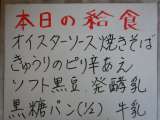 本日の給食
オイスターソース焼きそば
きゅうりのピリ辛あえ
ソフト黒豆 発酵乳
黒糖パン(1/2) 牛乳